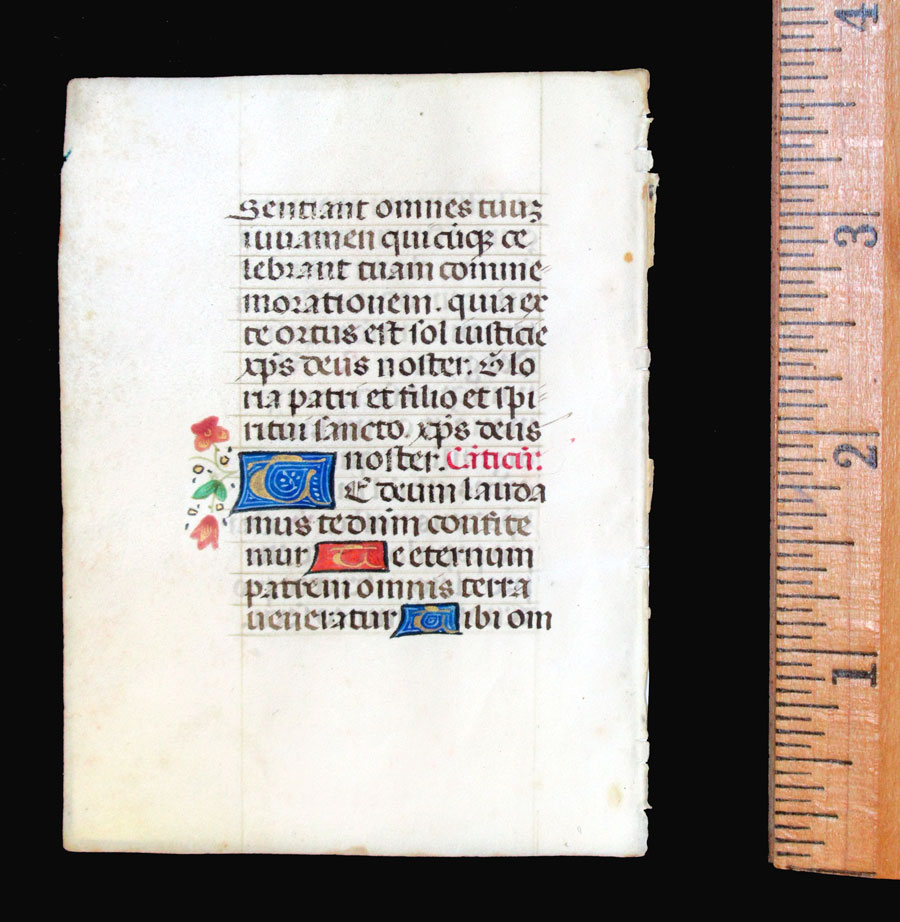 Sentiant omnes tuuꝫ
iuuamen qui cūqꝫ ce
lebrant tuam comme-
morationem. quia ex
te ortus est sol iusticie
xp̄s deus noster. Glo
ria patri et filio et spi-
ritui sancto. xp̄s deus
noster. Cāticū.
TE deum lauda
mus te dūm confite
mur Te eternum
patrem omnis terra
ueneratur Tibi om
4
3
2
1